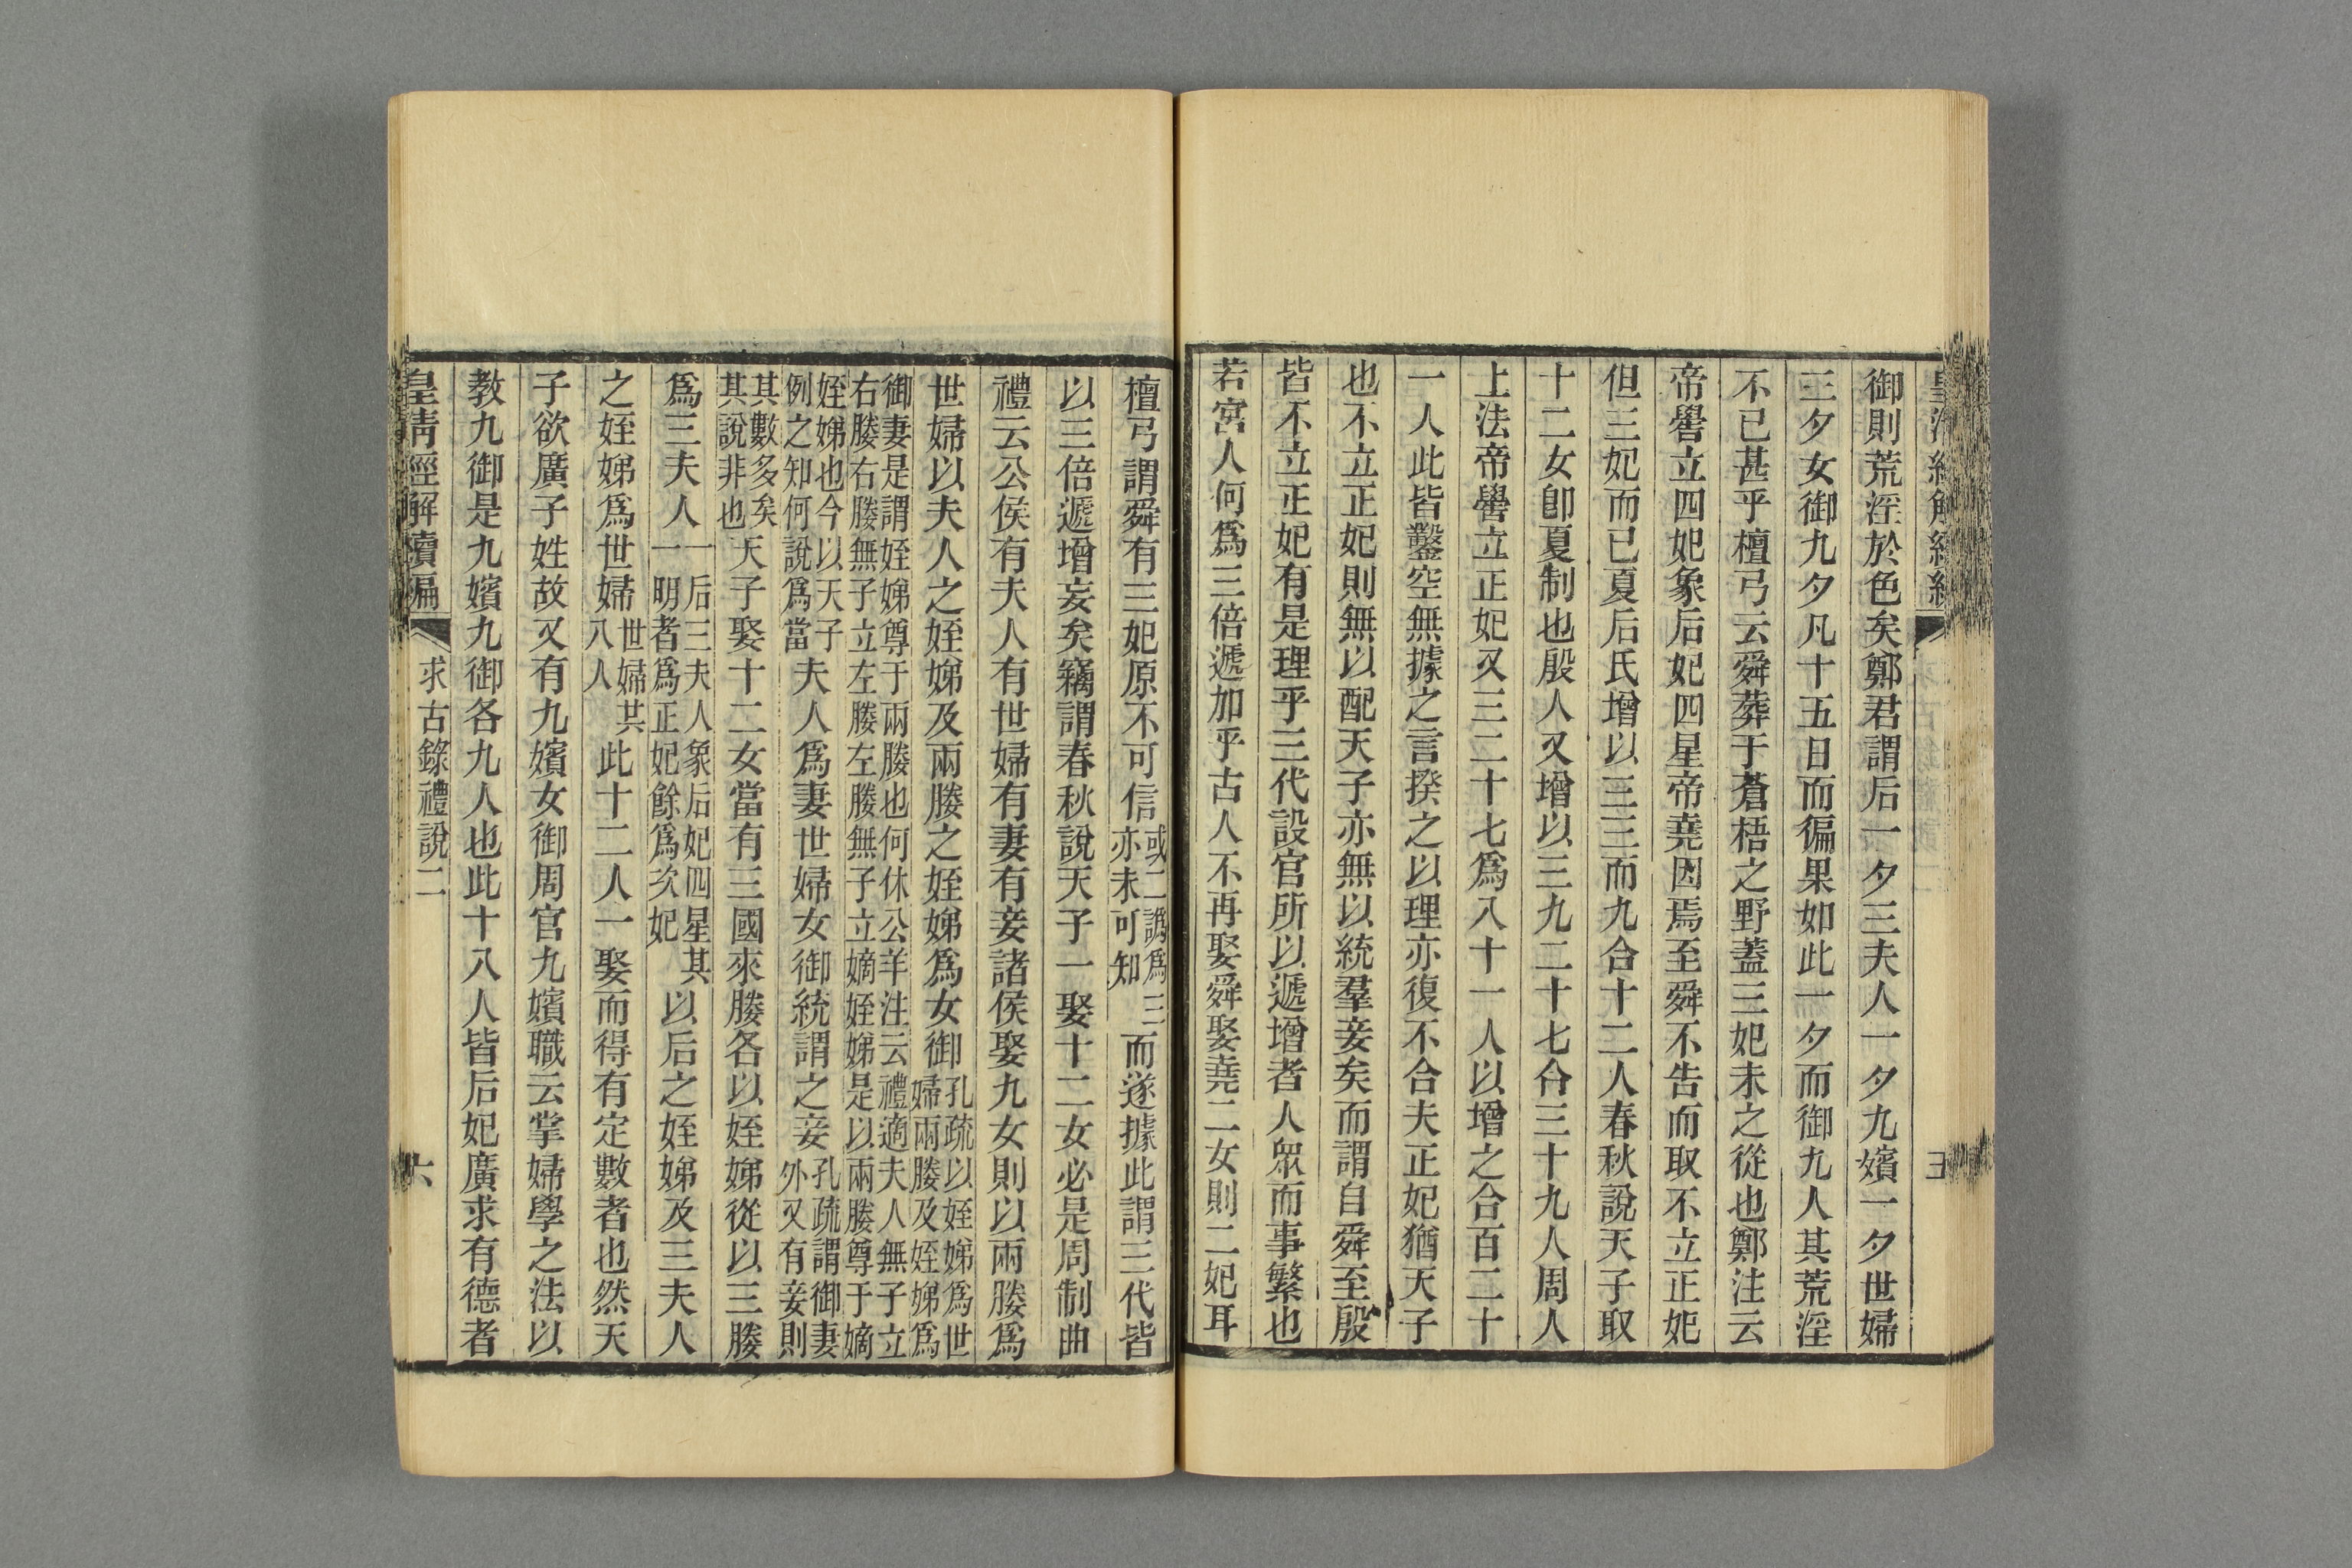 御則荒淫於色矣鄭君謂后一夕三夫人一夕九嬪一夕世婦
三夕女御九夕凡十五日而徧果如此一夕而御九人其荒淫
不已甚乎檀弓云舜葬于蒼梧之野蓋三妃未之從也鄭注云
帝嚳立四妃象后妃四星帝堯因焉至舜不告而取不立正妃
但三妃而已夏后氏增以三三而九合十二人春秋說天子取
十二女卽夏制也殷人又增以三九二十七合三十九人周人
上法帝嚳立正妃又三二十七爲八十一人以增之合百二十
一人此皆鑿空無據之言揆之以理亦復不合夫正妃猶天子
也不立正妃則無以配天子亦無以統羣妾矣而謂自舜至殷
皆不立正妃有是理乎三代設官所以遞增者人眾而事繁也
若宮人何爲三倍遞加乎古人不再娶舜娶堯二女則二妃耳
檀弓謂舜有三妃原不可信或二譌爲三亦未可知而遂據此謂三代皆
以三倍遞增妄矣竊謂春秋說天子一娶十二女必是周制曲
禮云公侯有夫人有世婦有妻有妾諸侯娶九女則以兩媵爲
世婦以夫人之姪娣及兩媵之姪娣爲女御孔疏以姪娣爲世婦兩媵及姪娣爲
御妻是謂姪娣尊于兩媵也何休公羊注云禮適夫人無子立右媵右媵無子立左媵左媵無子立嫡姪娣是以兩媵尊于嫡
姪娣也今以天子例之知何說爲當夫人爲妻世婦女御統謂之妾孔疏謂御妻外又有妾則
其數多矣其說非也天子娶十二女當有三國來媵各以姪娣從以三媵
爲三夫人一后三夫人象后妃四星其一明者爲正妃餘爲次妃以后之姪娣及三夫人
之姪娣爲世婦世婦共八人此十二人一娶而得有定數者也然天
子欲廣子姓故又有九嬪女御周官九嬪職云掌婦學之法以
教九御是九嬪九御各九人也此十八人皆后妃廣求有德者
皇清經解續編
求古錄禮說二
六